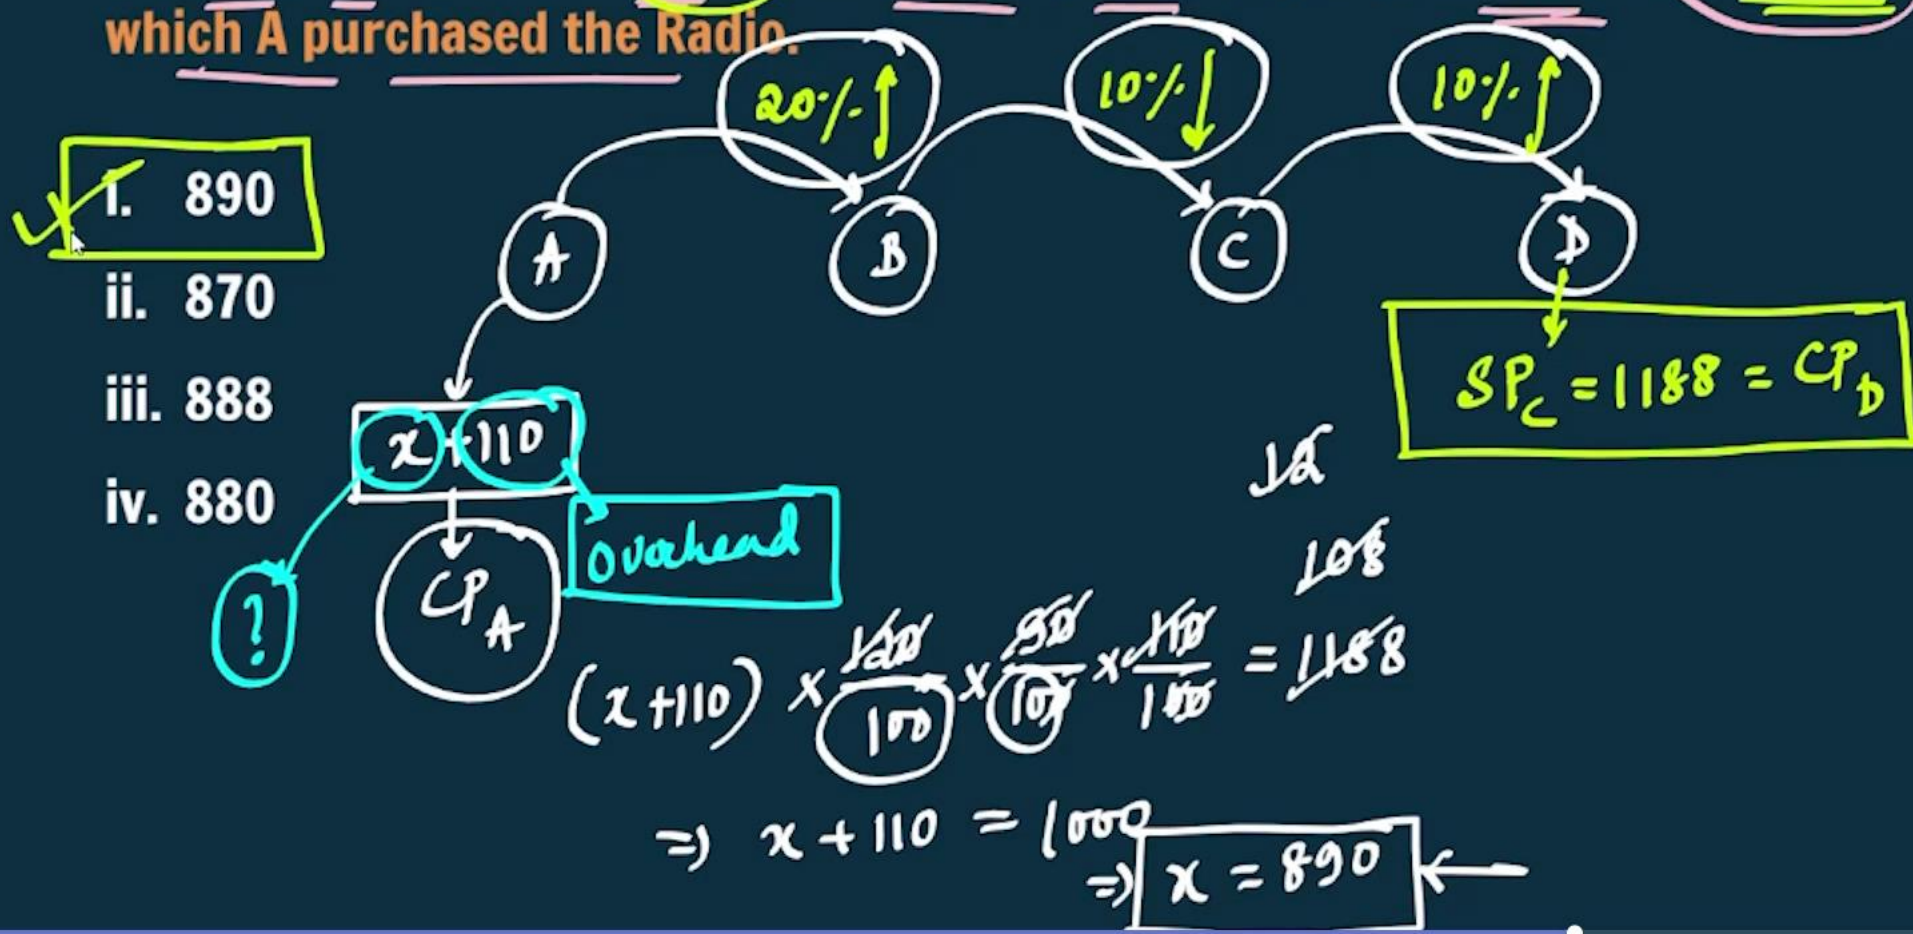 which A purchased the Radio.
20% ↑
10% ↓
10% ↑
i. 890
ii. 870
iii. 888
iv. 880
A
B
C
D
SP_C = 1188 = CP_D
x + 110
overhead
?
CP_A
12
108
(x + 110) × 120/100 × 90/100 × 110/100 = 1188
⇒ x + 110 = 1000
⇒ x = 890